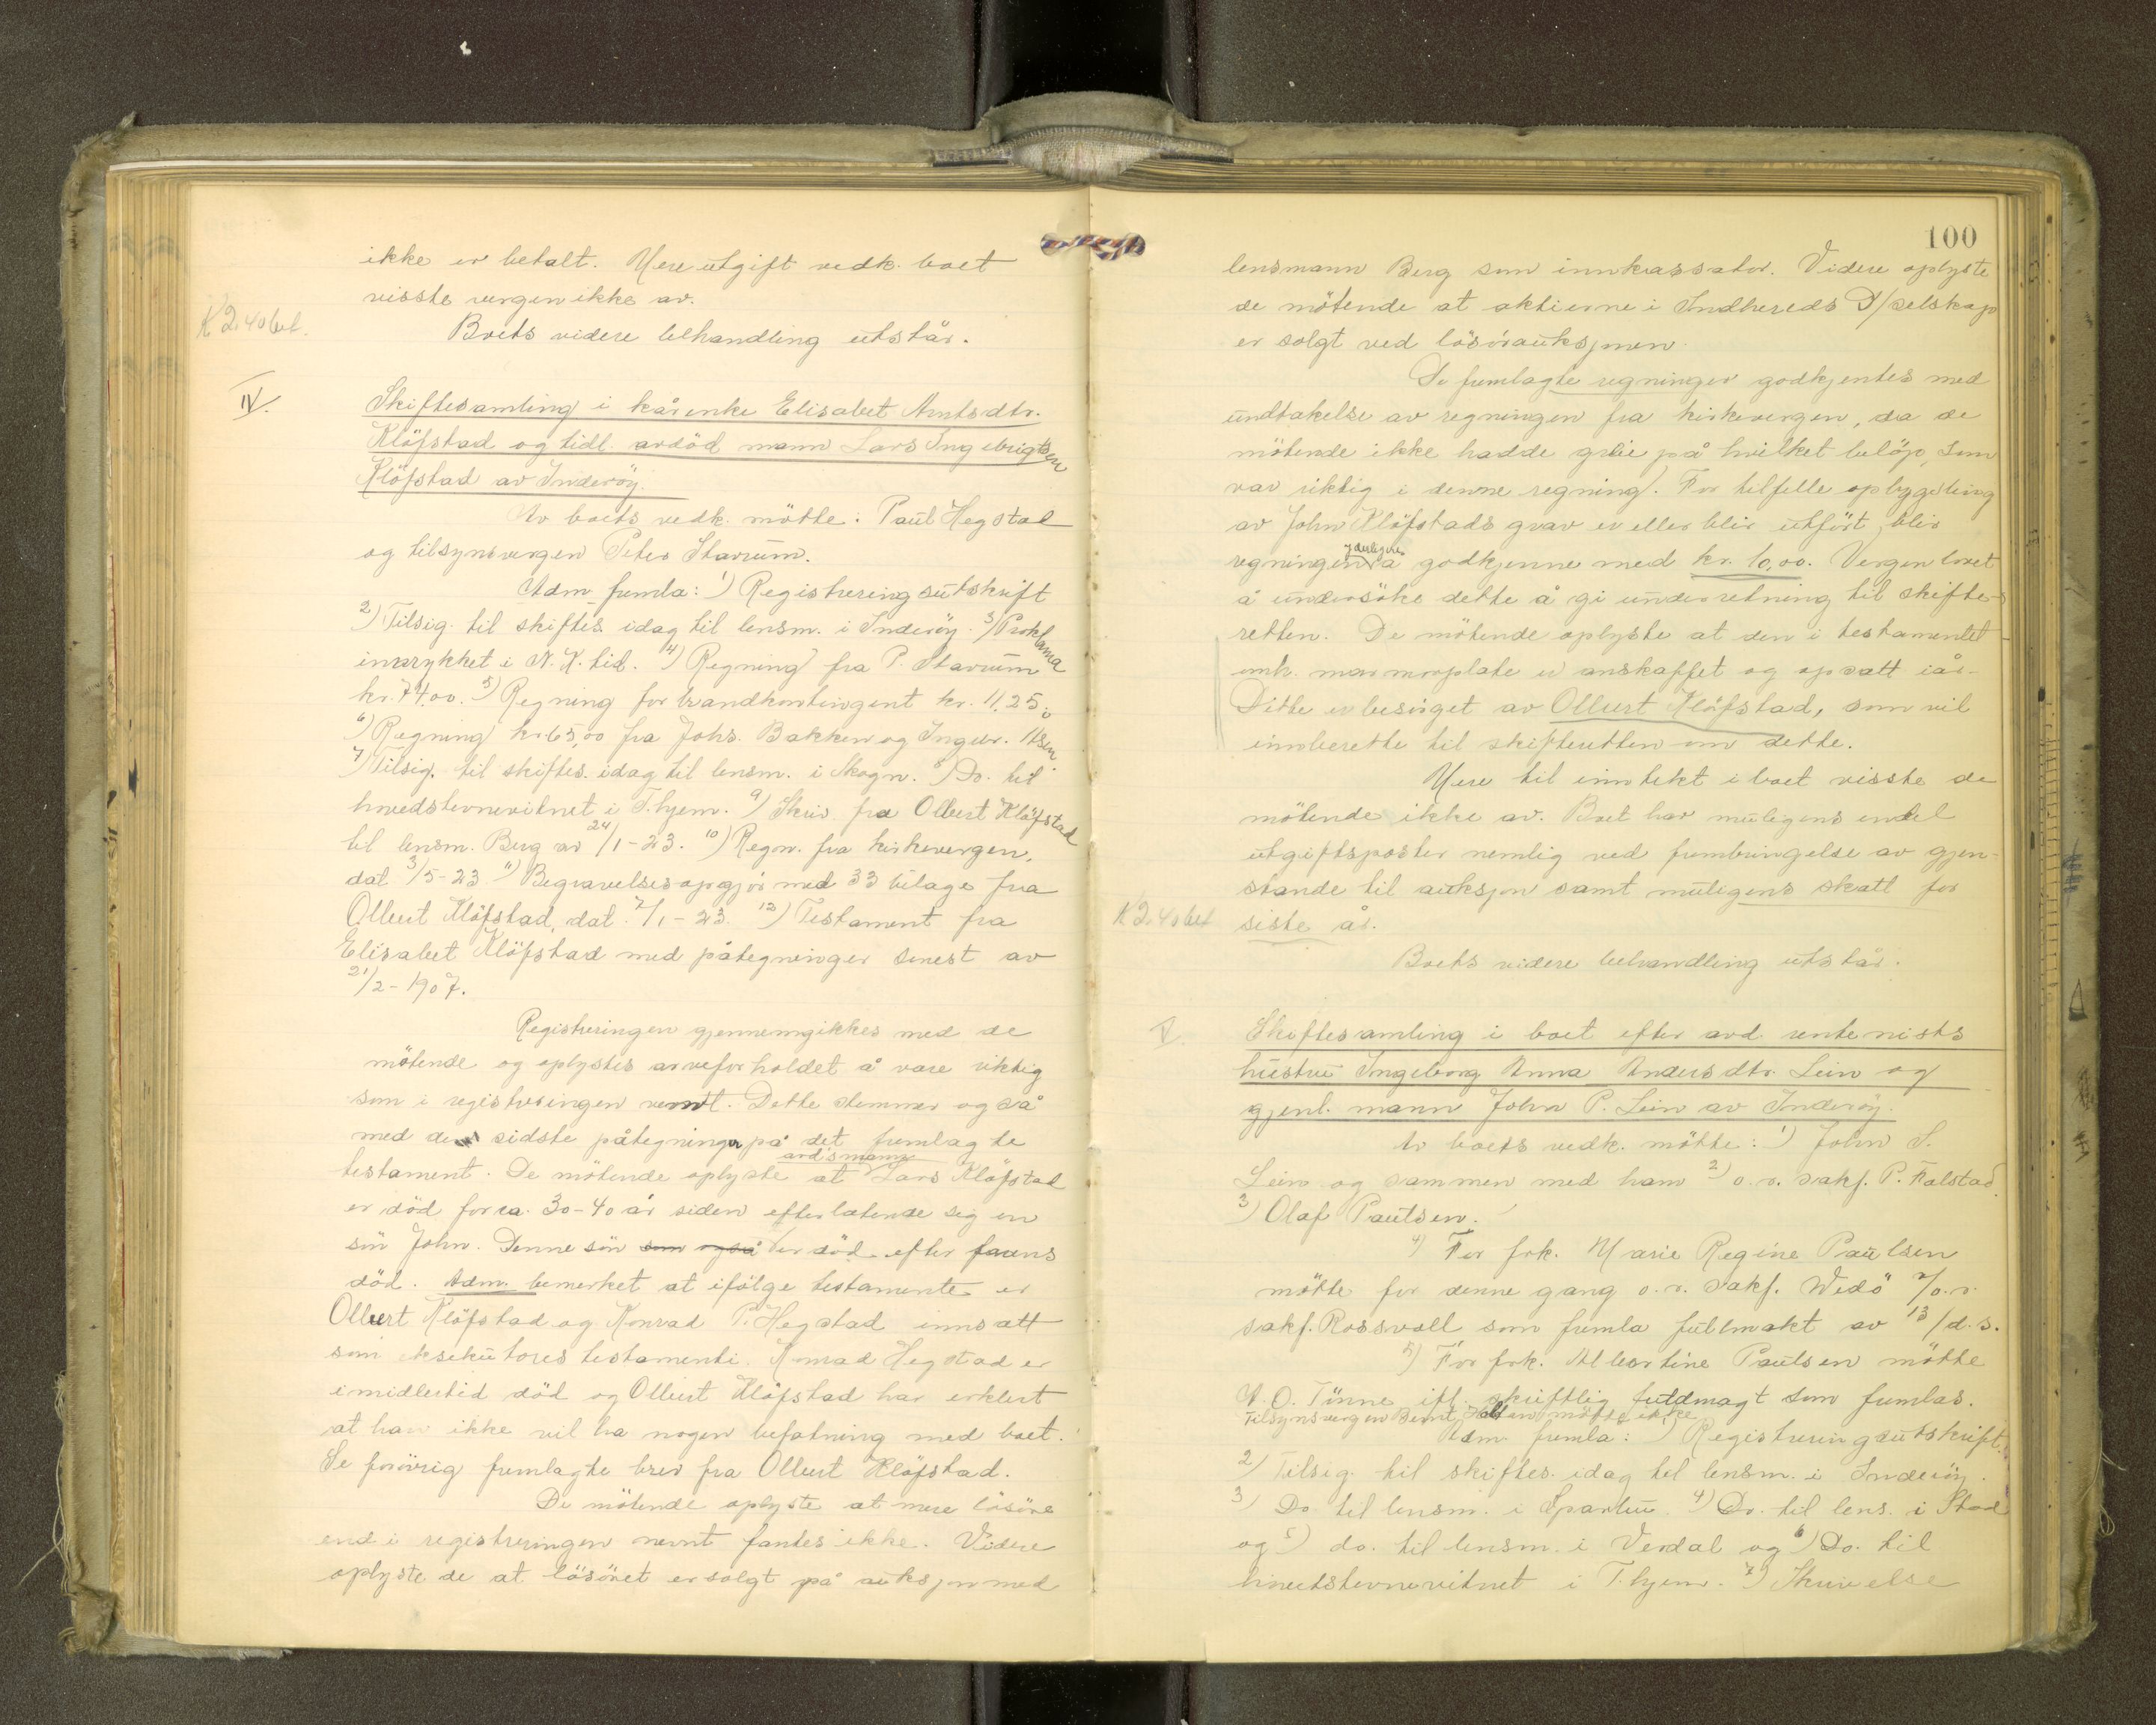 ikke er betalt. Mere utgift vedk. boet
visste vergen ikke av.
K 2.40 bet.
Boets videre behandling utstår.
IV.
Skiftesamling i kårenke Elisabet Arntsdtr.
Klöfstad og tidl. avdöd mann Lars Ingebrigtsen
Klöfstad av Inderöy.
Av boets vedk. mötte: Paul Hegstad
og tilsynsvergen Peter Stavrum.
Adm. fremla: 1) Registreringsutskrift
2) Tilsig. til skiftes. idag til lensm. i Inderöy. 3) Proklama
innrykket i N. K. tid. 4) Regning fra P. Stavrum
kr. 74.00. 5) Regning for brandkontingent kr. 11,25.
6) Regning kr. 65,00 fra Johs. Bakken og Ingvr.
7) Tilsig. til skiftes. idag til lensm. i Skogn. 8) Do. til
hovedstevnevitnet i T.hjem. 9) Skriv. fra Ollert Klöfstad
til lensm. Berg av 24/1-23. 10) Regn. fra kirkevergen,
dat 3/5-23 11) Begravelsesopgjör med 33 bilage fra
Ollert Klöfstad, dat. 2/1-23. 12) Testament fra
Elisabet Klöfstad med påtegninger senest av
21/2-1907.
Registreringen gjennemgikkes med de
mötende og oplystes arveforholdet å være riktig
som i registreringen nevnt. Dette stemmer også
med den sidste påtegninger på det fremlagte
avd's mann
testament. De mötende oplyste at Lars Klöfstad
er död for ca. 30-40 år siden efterlatende sig en
sön John. Denne sön som også er död efter farens
död. Adm. bemerket at ifölge testamente er
Ollert Klöfstad og Konrad P. Hegstad innsatt
som eksekutores testamenti. Konrad Hegstad er
imidlertid död og Ollert Klöfstad har erklert
at han ikke vil ha nogen befatning med boet.
Se forövrig fremlagte brev fra Ollert Klöfstad.
De mötende oplyste at mere lösöre
end i registreringen nevnt fantes ikke. Videre
oplyste de at lösöret er solgt på auksjon med
100
lensmann Berg som innkassator. Videre oplyste
de mötende at aktierne i Indhereds D/selskap
er solgt ved lösöreauksjonen.
De fremlagte regninger godkjentes med
undtakelse av regningen fra kirkevergen, da de
mötende ikke hadde greie på hvilket belöp, som
var riktig i denne regning. For tilfelle opbygging
av John Klöfstads grav er eller blir utfört, blir
yderligere
regningen å godkjenne med kr. 10,00. Vergen lovet
å undersöke dette å gi underretning til skifte-
retten. De mötende oplyste at den i testamentet
omh. marmorplate er anskaffet og opsatt iår.
Dette er besörget av Ollert Klöfstad, som vil
innberette til skifteretten om dette.
Mere til inntekt i boet visste de
mötende ikke av. Boet har muligens endel
utgiftsposter nemlig ved frembringelse av gjen-
stande til auksjon samt muligens skatt for
K 2.40 bet
siste år.
Boets videre behandling utstår.
V.
Skiftesamling i boet efter avd. rentenists
hustru Ingeborg Anna Andersdtr. Lein og
gjenl. mann John P. Lein av Inderöy.
Av boets vedk. mötte: 1) John P.
Lein og sammen med ham 2) o.r. sakf. P. Falstad
3) Olaf Paulsen.
4) For frk. Marie Regine Paulsen
mötte for denne gang o.r. sakf. Wedö f/o.r.
sakf. Rossvoll som fremla fullmakt av 13/d.s.
5) For frk. Albertine Paulsen mötte
A. O. Tinne ifl. skriftlig fuldmagt som fremlas.
Tilsynsvergen Bernt Holtan mötte ikke
Adm. fremla: 1) Registreringsutskrift.
2) Tilsig. til skiftes. idag til lensm. i Inderöy.
3) Do. til lensm. i Sparbu. 4) Do. til lens. i Stod
og 5) do. til lensm. i Verdal og 6) Do. til
hovedstevnevitnet i T.hjem. 7) Skrivelse